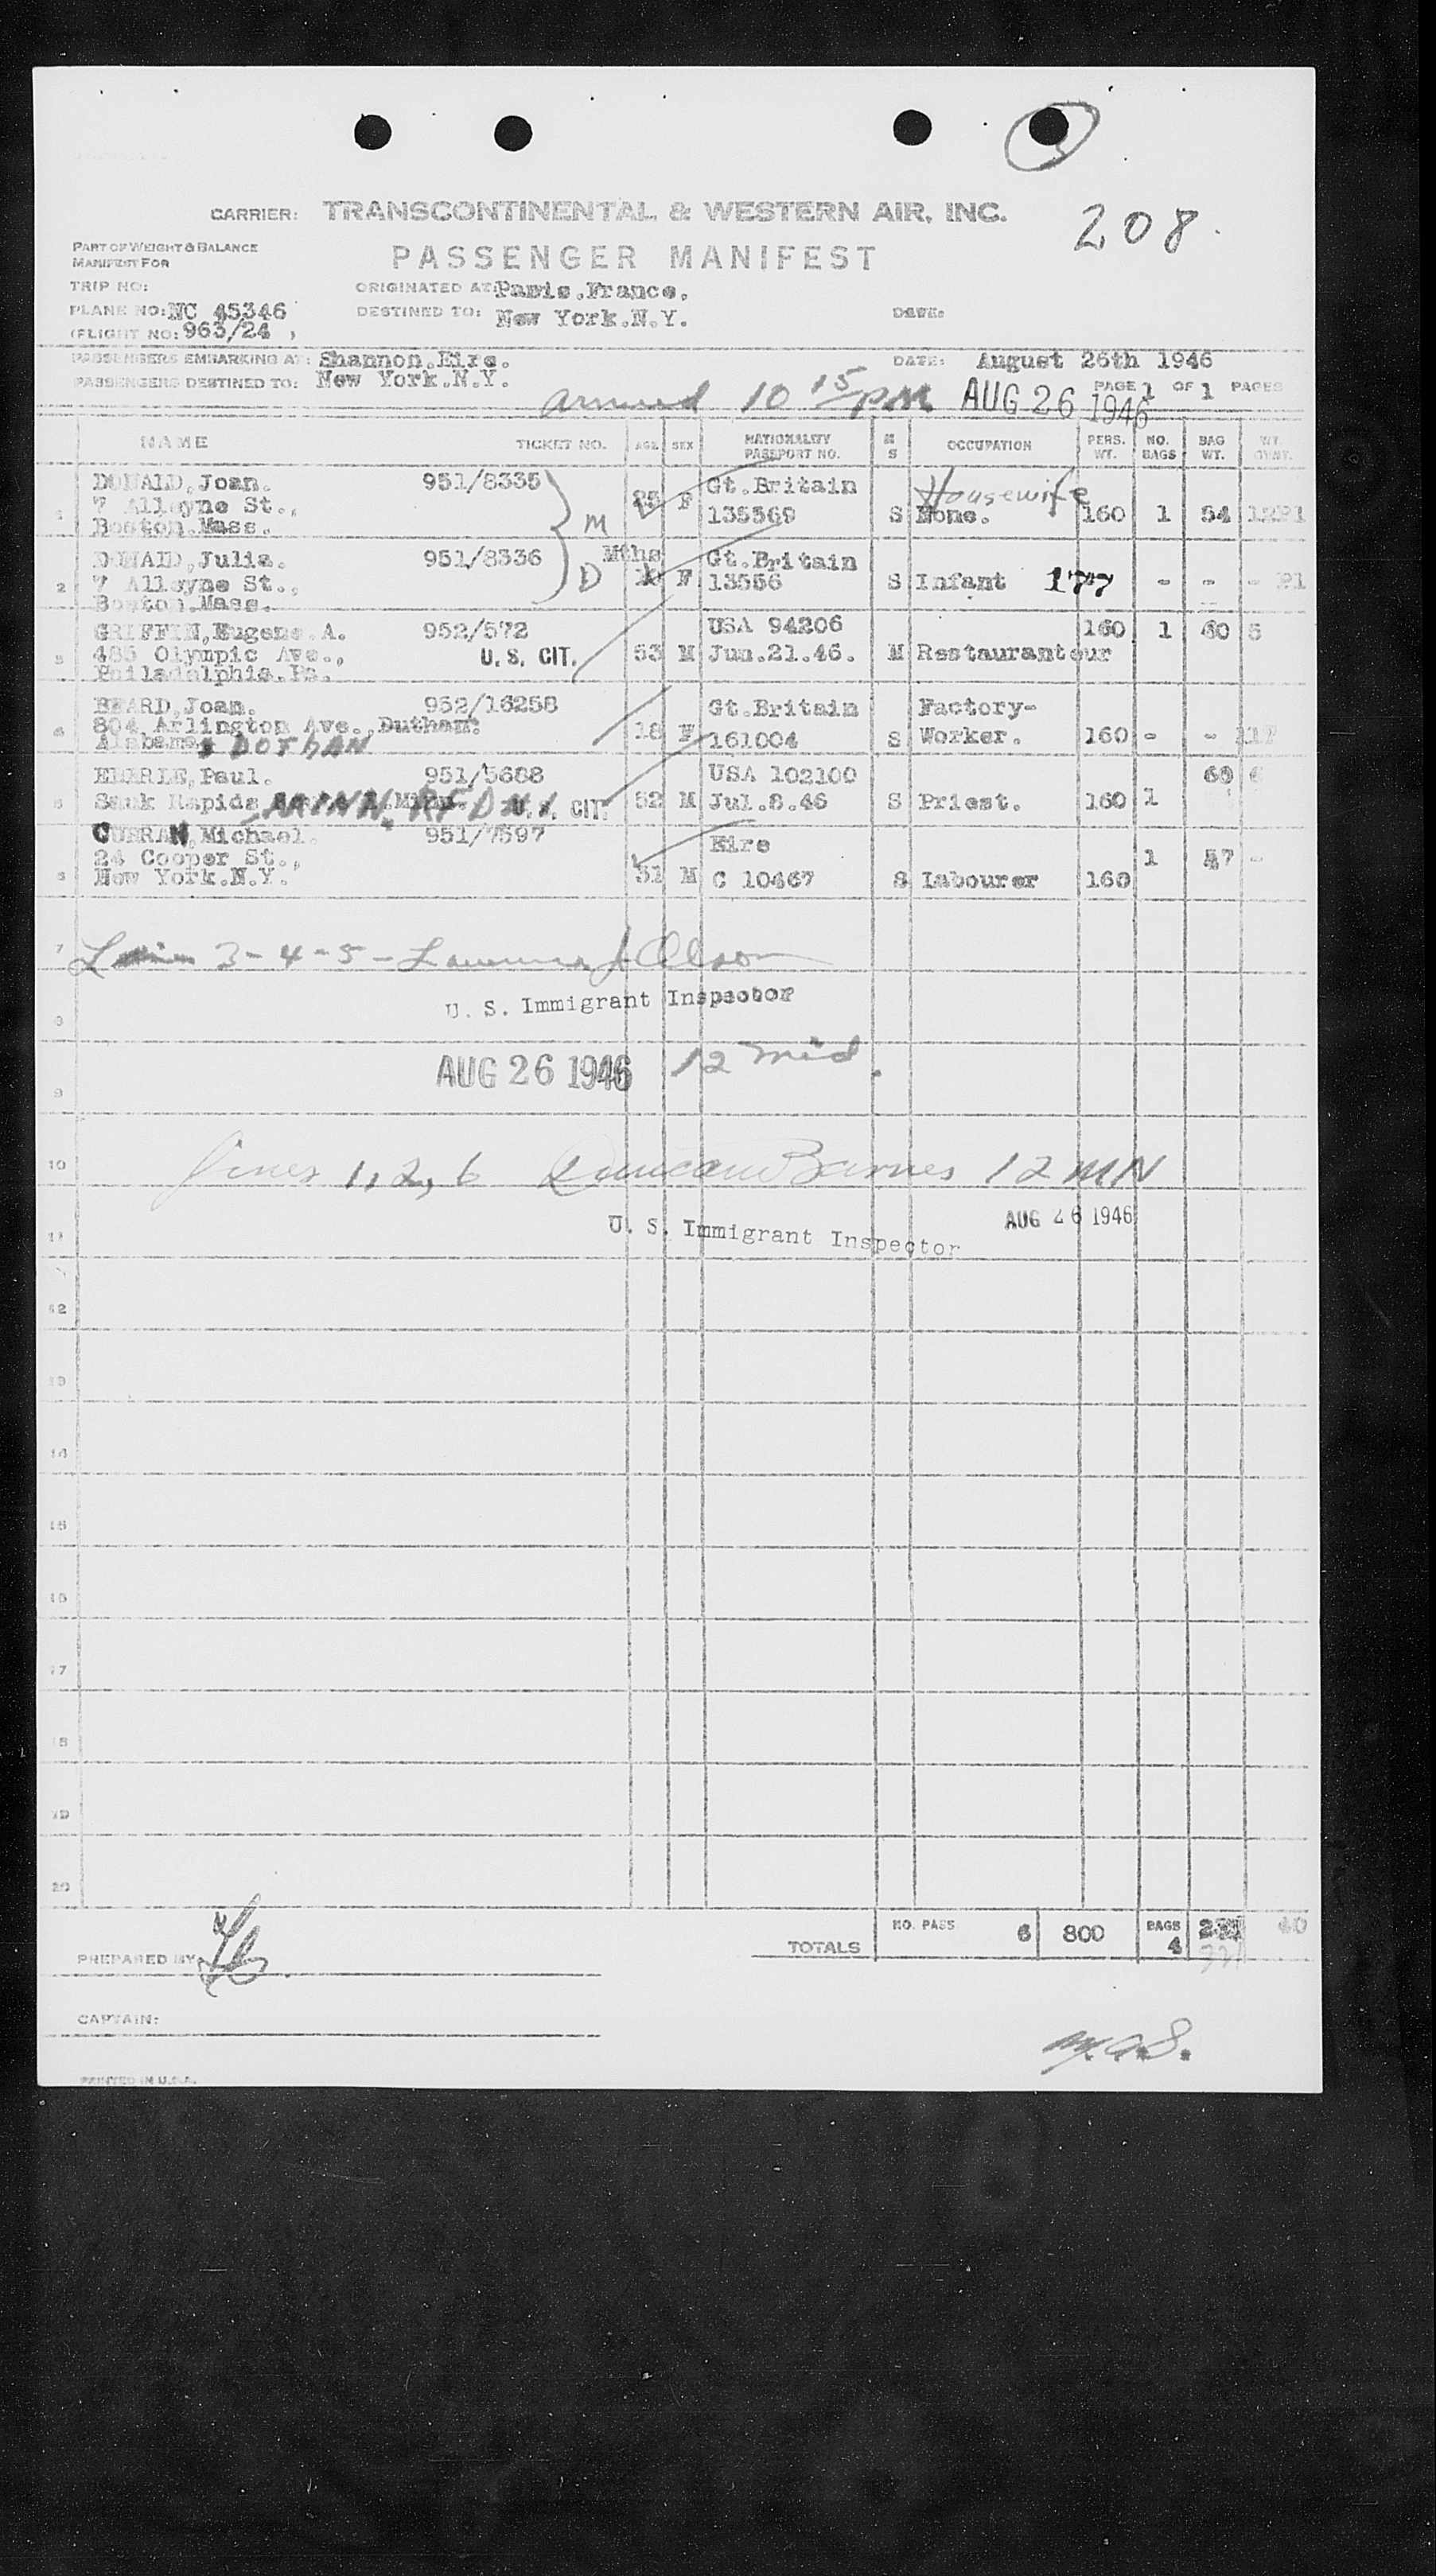 CARRIER: TRANSCONTINENTAL & WESTERN AIR, INC.
208.
PART OF WEIGHT & BALANCE
MANIFEST FOR
PASSENGER MANIFEST
TRIP NO:
ORIGINATED AT: Paris.France.
PLANE NO: NC 45346
DESTINED TO: New York.N.Y.
DATE:
(FLIGHT NO: 963/24 )
PASSENGERS EMBARKING AT: Shannon.Eire.
DATE: August 26th 1946
PASSENGERS DESTINED TO: New York.N.Y.
PAGE 1 OF 1 PAGES
arrived 10 15 PM AUG 26 1946
NAME TICKET NO. AGE SEX NATIONALITY PASSPORT NO. M S OCCUPATION PERS. WT. NO. BAGS BAG WT.
DONALD, Joan. 951/8335 Gt.Britain Housewife
7 Alleyne St., M F 135569 S None. 160 1 54
Boston.Mass.
DONALD, Julia. 951/8336 Mths Gt.Britain
2 7 Alleyne St., D F 13556 S Infant 177 - - -
Boston.Mass.
GRIFFIN, Eugene A. 952/572 USA 94206 160 1 60 5
485 Olympic Ave., U. S. CIT. 53 M Jun.21.46. M Restauranteur
Philadelphia.Pa.
BEARD, Joan. 952/16258 Gt.Britain Factory-
804 Arlington Ave., Dutham.
Alabama DOTHAN 18 F 161004 S Worker. 160 - -
EBERLE, Paul. 951/5688 USA 102100 60
Sauk Rapids MINN. RFD U. S. CIT. 52 M Jul.8.46 S Priest. 160 1
CURRAN, Michael. 951/7597 Eire
24 Cooper St., 1 57 -
New York.N.Y. 31 M C 10467 S Labourer 160
7 3-4-5- Lawrence J Olson
U. S. Immigrant Inspector
8
AUG 26 1946 12 Mid.
9
10 Lines 1, 2, 6 Duncan Barnes 12 MN
U. S. Immigrant Inspector AUG 26 1946
11
12
13
14
15
16
17
18
19
20
TOTALS NO. PASS 6 800 BAGS 4 40
PREPARED BY
CAPTAIN:
M.A.S.
PRINTED IN U.S.A.